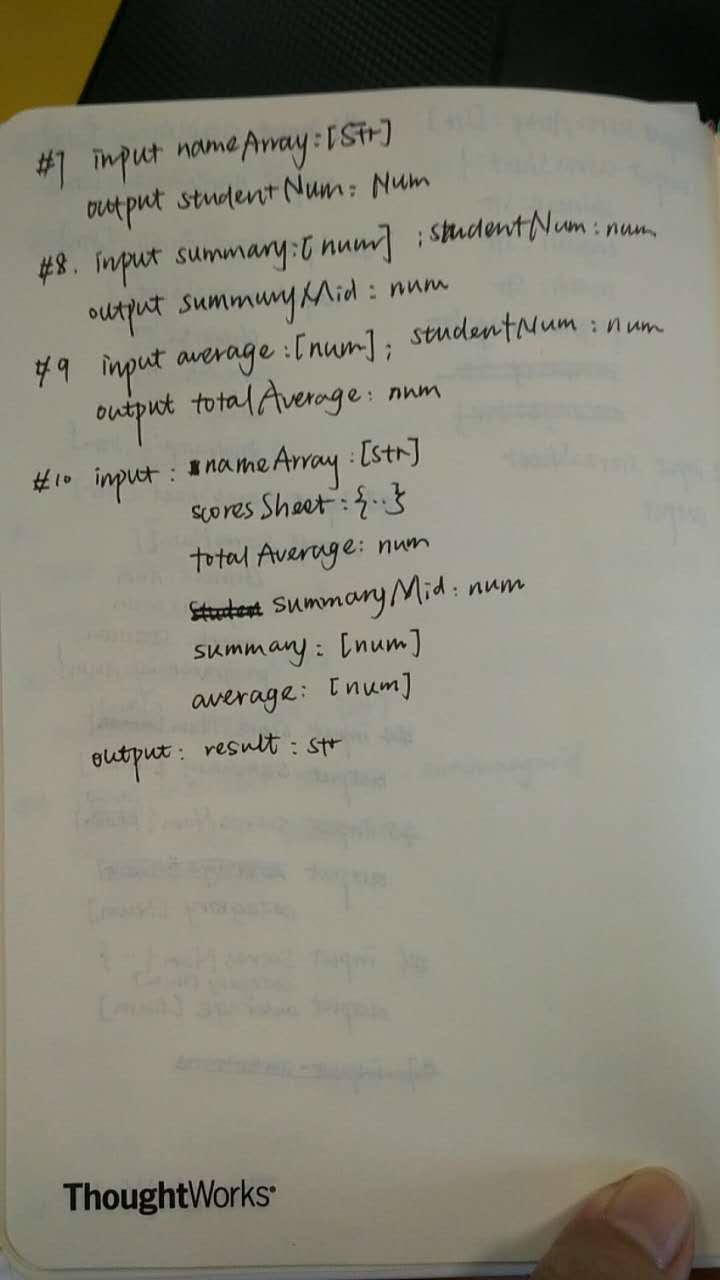 #7 input nameArray:[Str]
output studentNum: Num
#8. input summary:[num] ; studentNum: num
output summuryMid: num
#9 input average:[num]; studentNum: num
output totalAverage: num
#10 input: nameArray:[str]
scoresSheet:{..}
totalAverage: num
summaryMid: num
summary: [num]
average: [num]
output: result: str
ThoughtWorks